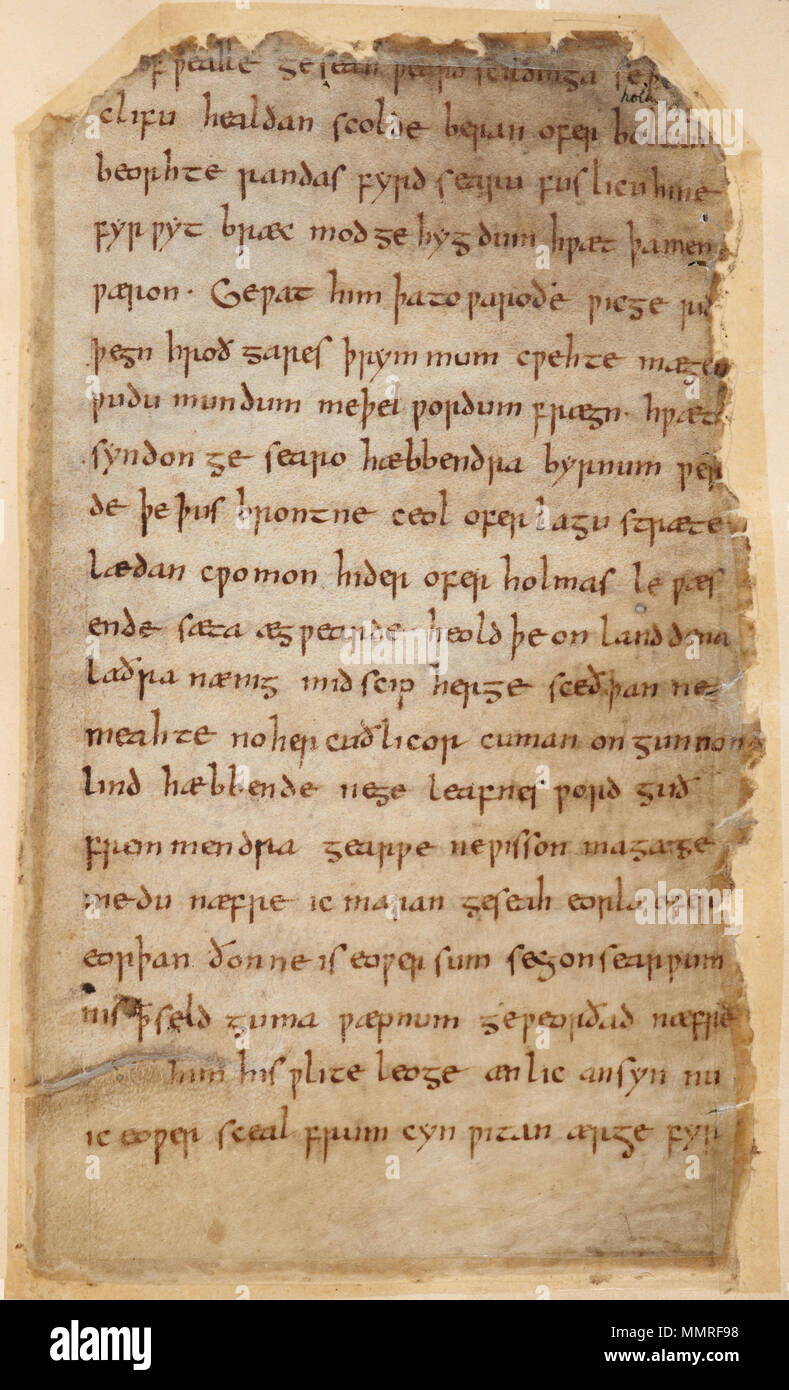 of ƿealle geseah ƿeard scildinga se
holm
clifu healdan scolde beran ofer
beorhte randas fyrd searu fuslicu hine
fyr ƿyt bræc mod ge hygdum hƿæt þa men
ƿæron · Geƿat him þa to ƿaroðe ƿicge ri
þegn hroð gares þrym mum cƿehte mægen
ƿudu mundum meþel ƿordum frægn · hƿæt
syndon ge searo hæbbendra byrnum ƿer
de þe þus brontne ceol ofer lagu stræte
lædan cƿomon hider ofer holmas le ƿæs
ende sæta æg ƿearde heold þe on land dena
laðra nænig mid scip herge sceðþan ne
meahte no her cuðlicor cuman ongunnon
lind hæbbende ne ge leafnes ƿord guð
fremmendra gearƿe ne ƿisson maga ge
medu næfre ic maran geseah eorla ofer
eorþan ðonne is eoƿer sum secg on searƿum
nis ꝥ seld guma ƿæpnum geƿeorðad næfre
him his ƿlite leoge ænlic ansyn nu
ic eoƿer sceal frum cyn ƿitan ær ge fyr
alamy
Image ID: MMRF98
www.alamy.com